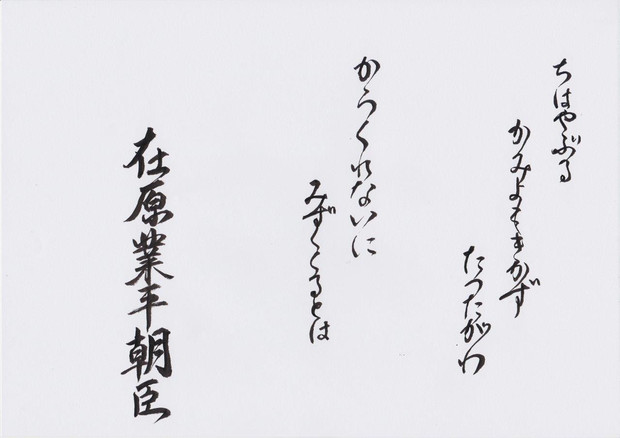 ちはやぶる
かみよもきかず
たつたがわ
からくれないに
みずくくるとは
在原業平朝臣